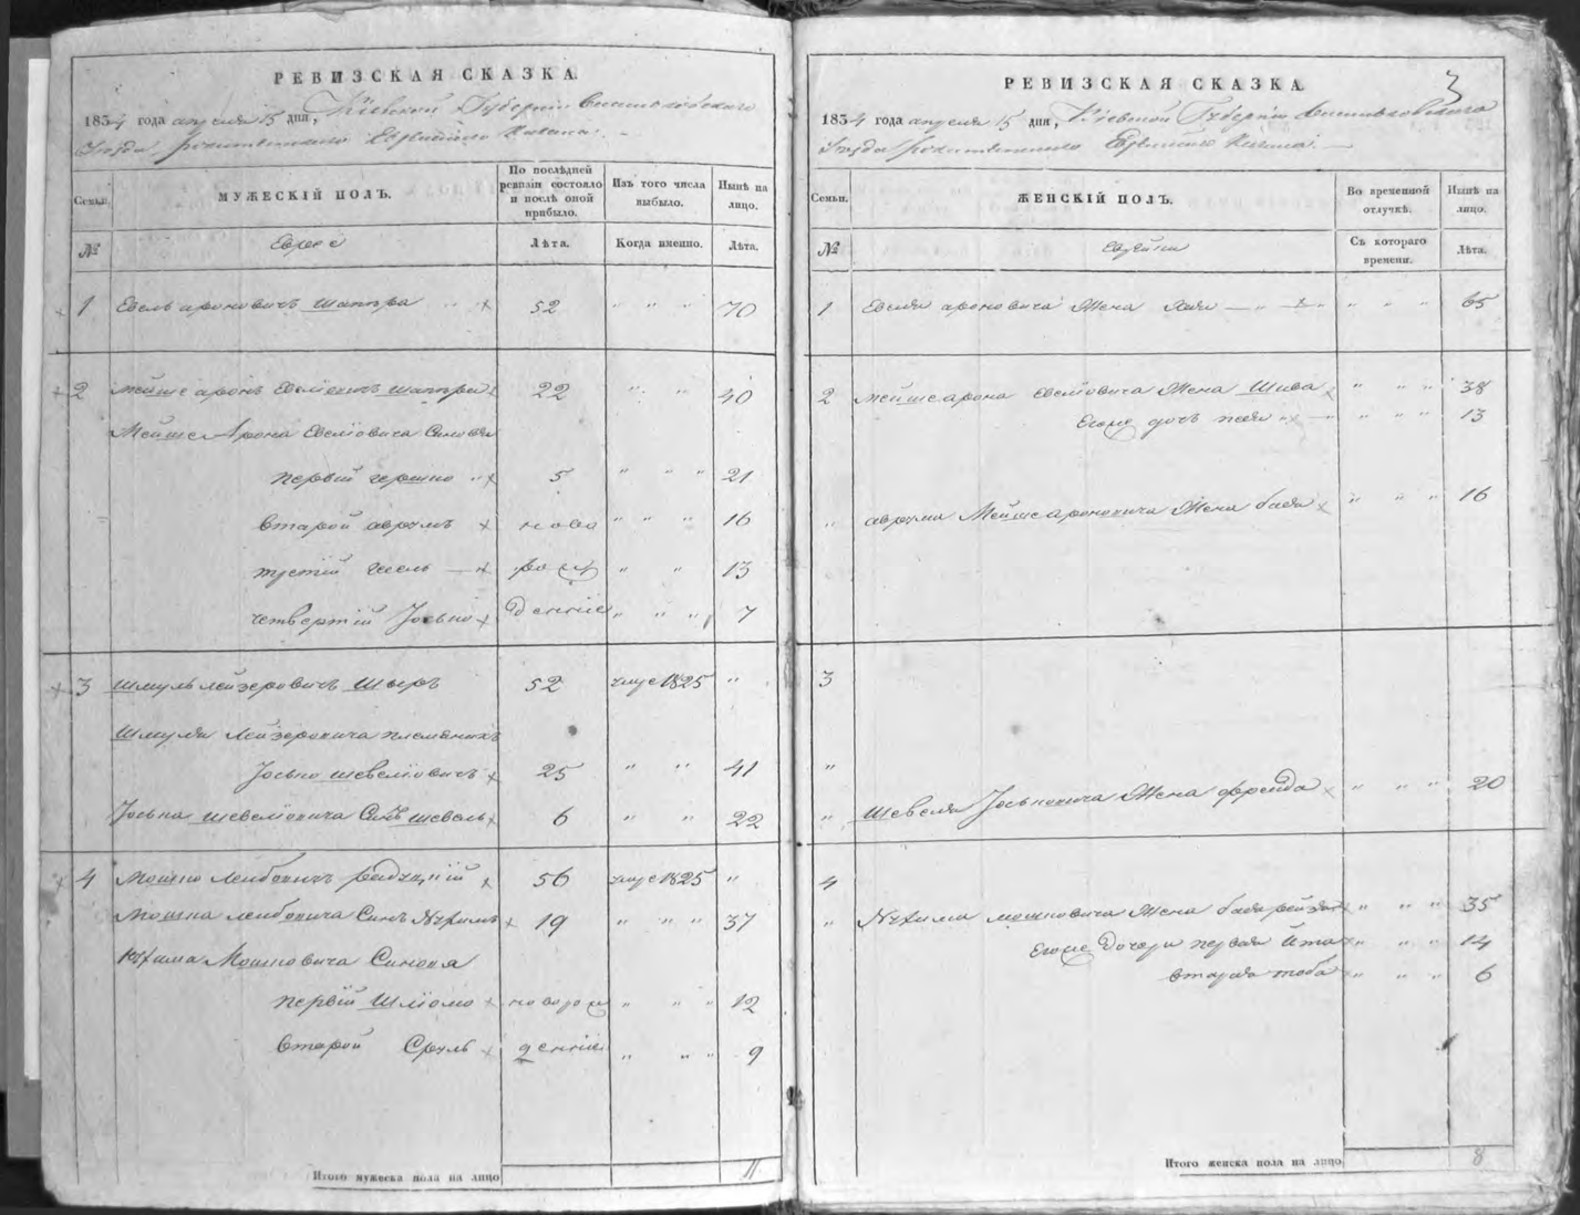 РЕВИЗСКАЯ СКАЗКА.
1834 года апреля 15 дня, Кіевской Губерніи Васильковскаго
Уезда, Еврейского Кагала.
Семьи.
МУЖЕСКІЙ ПОЛЪ.
По послѣдней ревизіи состояло и послѣ оной прибыло.
Изъ того числа выбыло.
Нынѣ на лицо.
№
Евреи
Лѣта.
Когда именно.
Лѣта.
1 Евель ароновичъ шапира 52 " " " 70
2 Мейше аронъ Евеліовичъ шапира 22 " " 40
Мейше Арона Евеліовича Синовья
первій гершко 5 " " " 21
второй аврумъ ново " " " 16
третій рож " " 13
четвертій Іосько денніе " " " 7
3 Шмуль лейзеровичъ 52 умре 1825 "
Шмуля Лейзеровича племянникъ
Іосько шевеліовичъ 25 " " 41
Іоська шевеліовича Синъ шевель 6 " " 22
4 Мошко Лейбовичъ 56 умре 1825 "
Мошка лейбовича Синъ Нухимъ 19 " " " 37
Нухима Мошковича Синовя
первій Шліомо новорож " " " 12
второй Сруль денніе " " " 9
Итого мужеска пола на лицо 11
3
РЕВИЗСКАЯ СКАЗКА.
1834 года апреля 15 дня, Кіевской Губерніи Васильковскаго
Уезда Еврейского Кагала.
Семьи.
ЖЕНСКІЙ ПОЛЪ.
Во временной отлучкѣ.
Нынѣ на лицо.
№
Еврейки
Съ котораго времени.
Лѣта.
1 Евеля ароновича Жена Хая " " " 65
2 Мейше арона Евеліовича Жена Шива " " " 38
Егоже дочъ " " " 13
" аврума Мейше ароновича Жена бася " " " 16
3
"
" Шевеля Іоськовича Жена фрейда " " " 20
4
" Нухима мошковича Жена бася рейзя " " " 35
Егоже Дочери первая Ита " " " 14
вторая тоба " " " 6
Итого женска пола на лицо 8